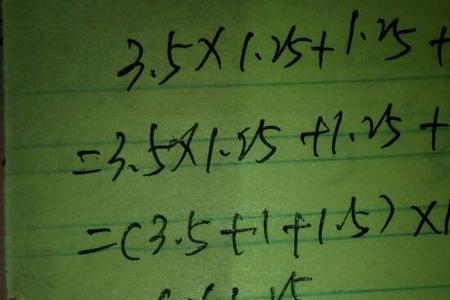 3.5×1.25+1.25+
=3.5×1.25+1.25+
=(3.5+1+1.5)×1